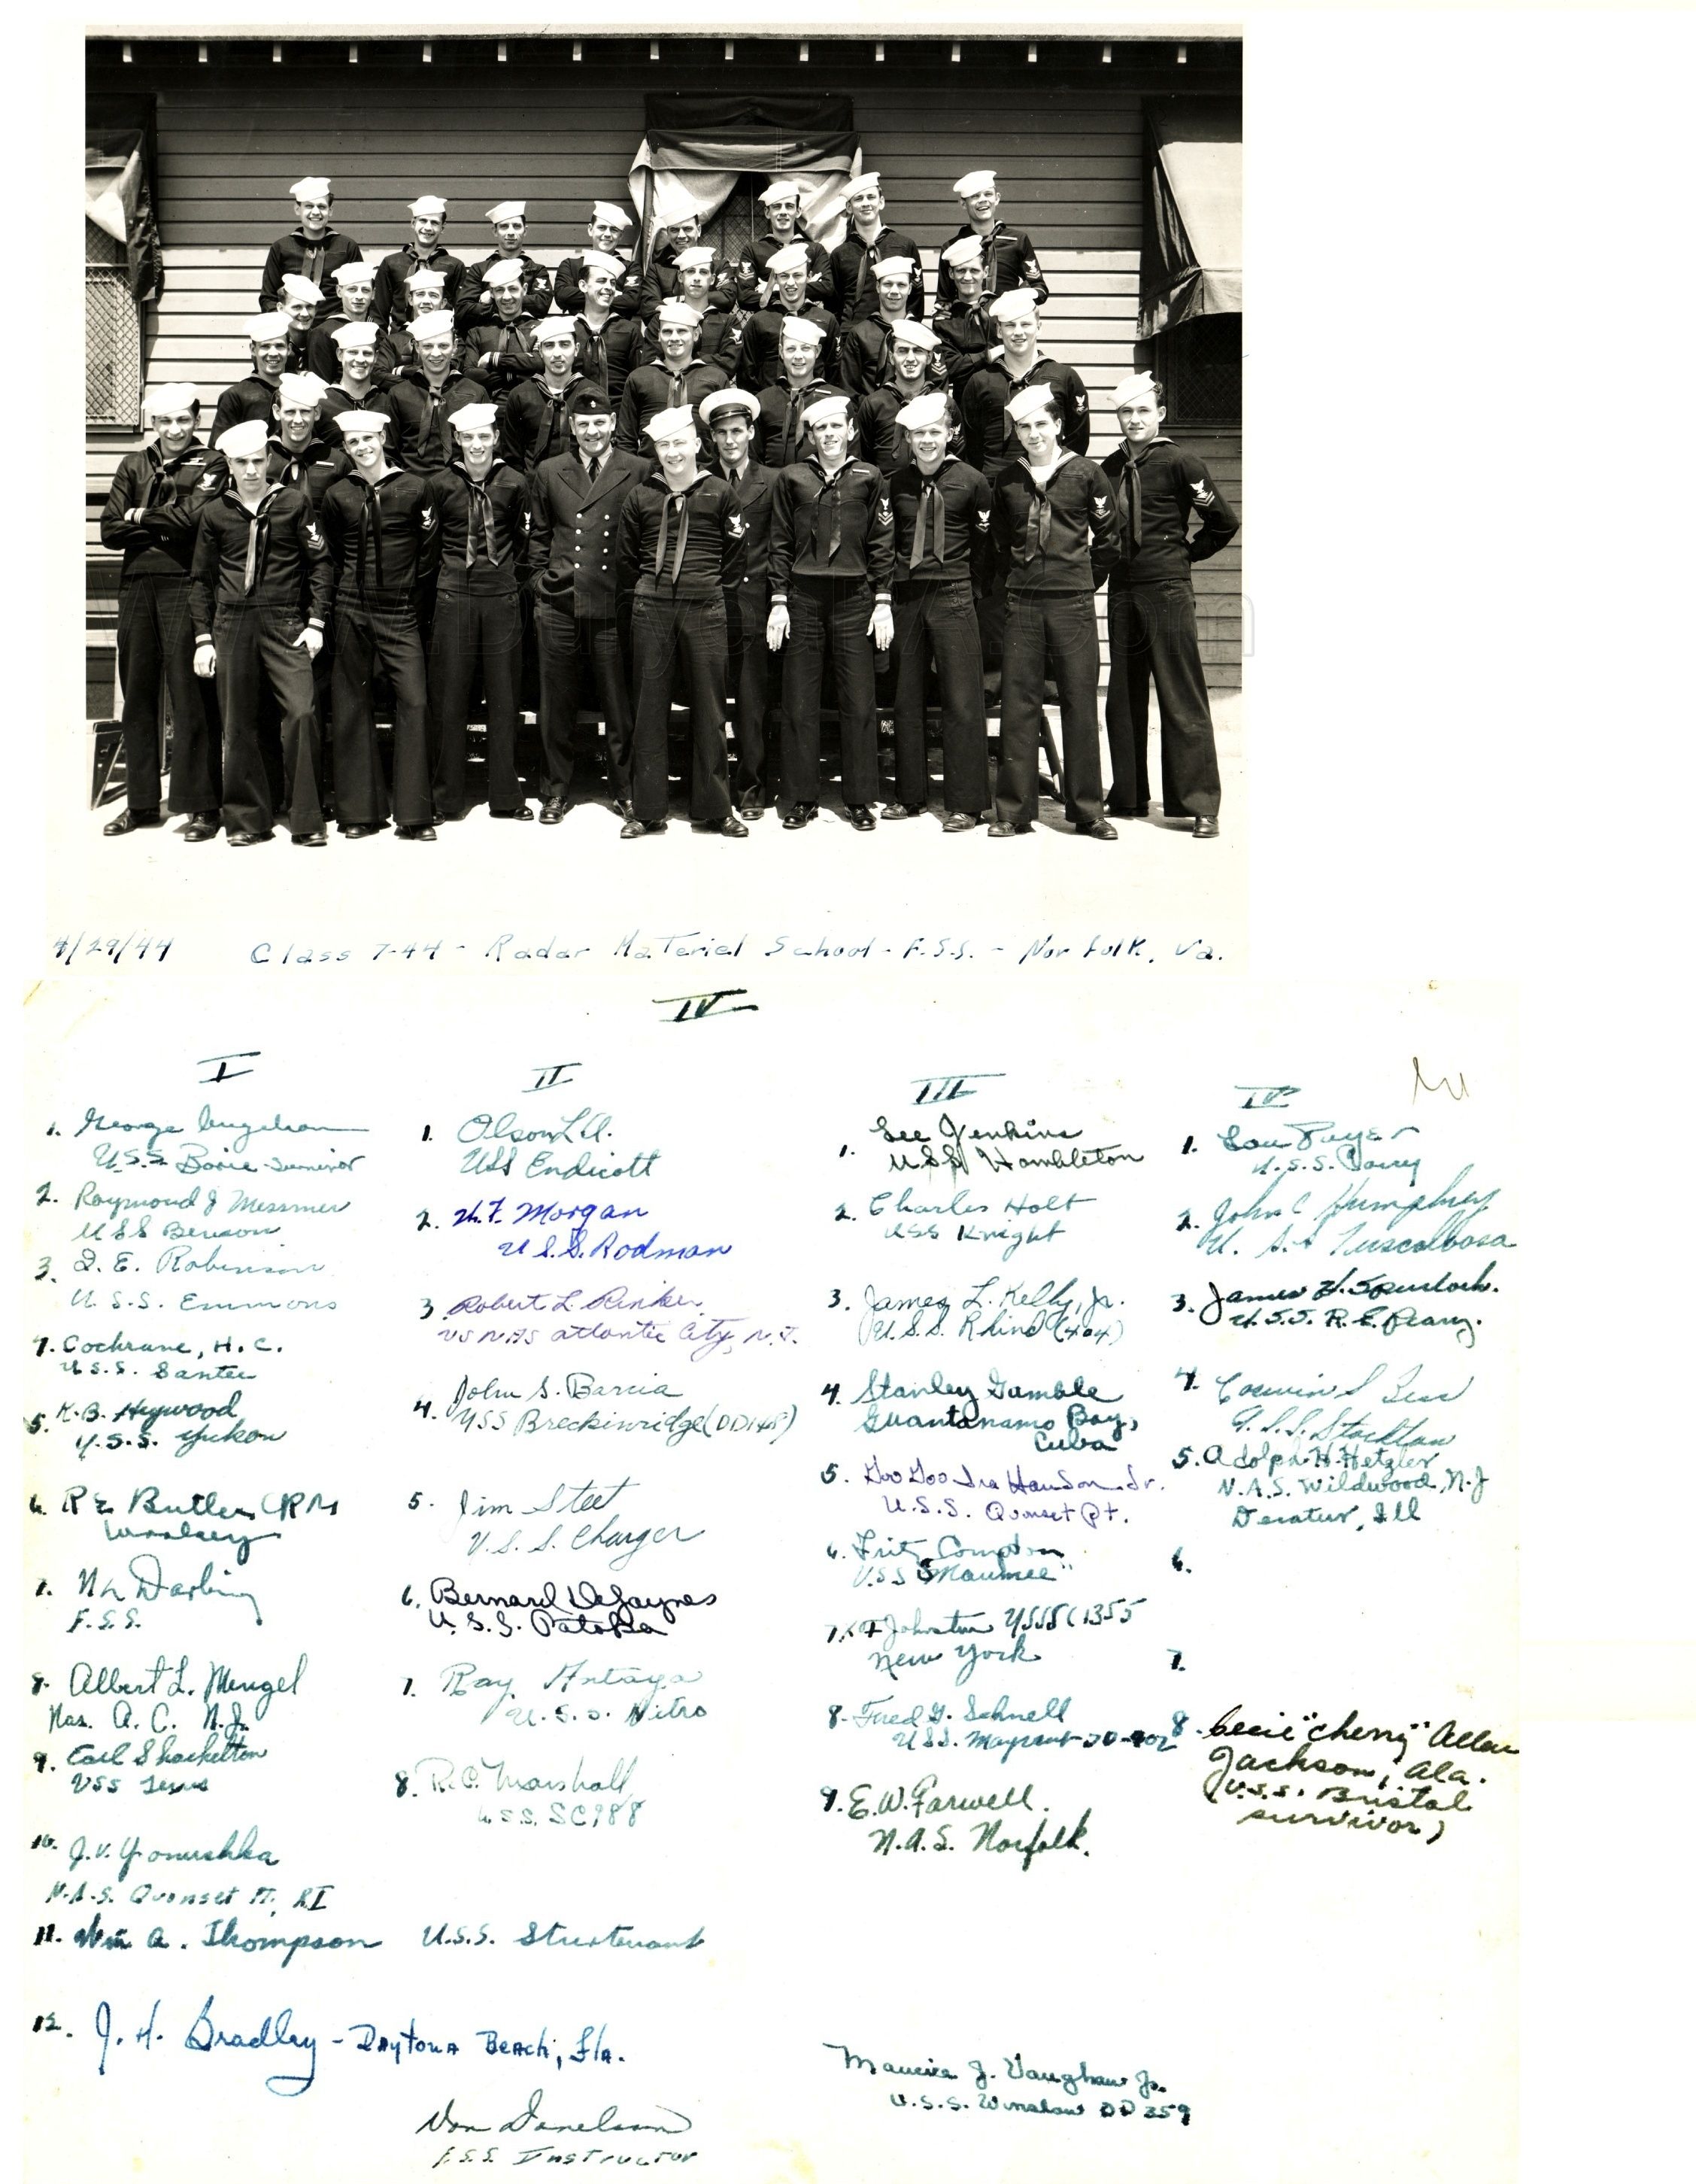 www.DuryeaPA.Com
4/29/44 Class 7-44 - Radar Materiel School - F.S.S. - Norfolk, Va.
IV
I
1. George
U.S.S. Borie Survivor
2. Raymond J Messmer
USS Benson
3. E. Robinson
U.S.S. Emmons
4. Cochrane, H.C.
U.S.S. Santee
5. K.B. Heywood
U.S.S. Yukon
6. R E Butler CRM
Woolsey
7. Darling
F.S.S.
8. Albert L. Mengel
Nas. A.C. N.J.
9. Earl Shackelton
USS Texas
10. J.V. Yonushka
N.A.S. Quonset Pt, RI
11. Wm A. Thompson U.S.S. Sturtevant
12. J. H. Bradley - Daytona Beach, Fla.
Don Danelson
F.S.S. Instructor
II
1. Olson L.A.
USS Endicott
2. W.F. Morgan
U.S.S. Rodman
3. Robert L. Rinker
US NAS Atlantic City, N.J.
4. John S. Barcia
USS Breckinridge (DD148)
5. Jim Steet
U.S.S. Charger
6. Bernard DeJaynes
U.S.S. Patoka
7. Ray Antaya
U.S.S. Nitro
8. R.C. Marshall
U.S.S. SC988
III
1. Lee Jenkins
USS Hambleton
2. Charles Holt
USS Knight
3. James L. Kelly, Jr.
U.S.S. Rhind (404)
4. Stanley Gamble
Guantanamo Bay,
Cuba
5. Goo Goo Ira Hanson Jr.
U.S.S. Quonset Pt.
6. Fritz Compton
U.S.S "Maumee"
7. Johnston USSSC1355
New York
8. Fred G. Schnell
U.S.S. Mayrant DD-402
9. E.W. Farwell.
N.A.S. Norfolk.
Maurice J. Vaughan Jr.
U.S.S. Winslow DD359
IV
1. Lou
U.S.S.
2. John C Humphrey
U.S.S Tuscalloosa
3. James H. Spurlock.
U.S.S. R.E. Peary.
4.
U.S.S. Stockton
5. Adolph H. Hetzler
N.A.S. Wildwood, N.J
Decatur, Ill
6.
7.
8. Cecil "Cherry" Allen
Jackson, Ala.
(U.S.S. Bristol
survivor)